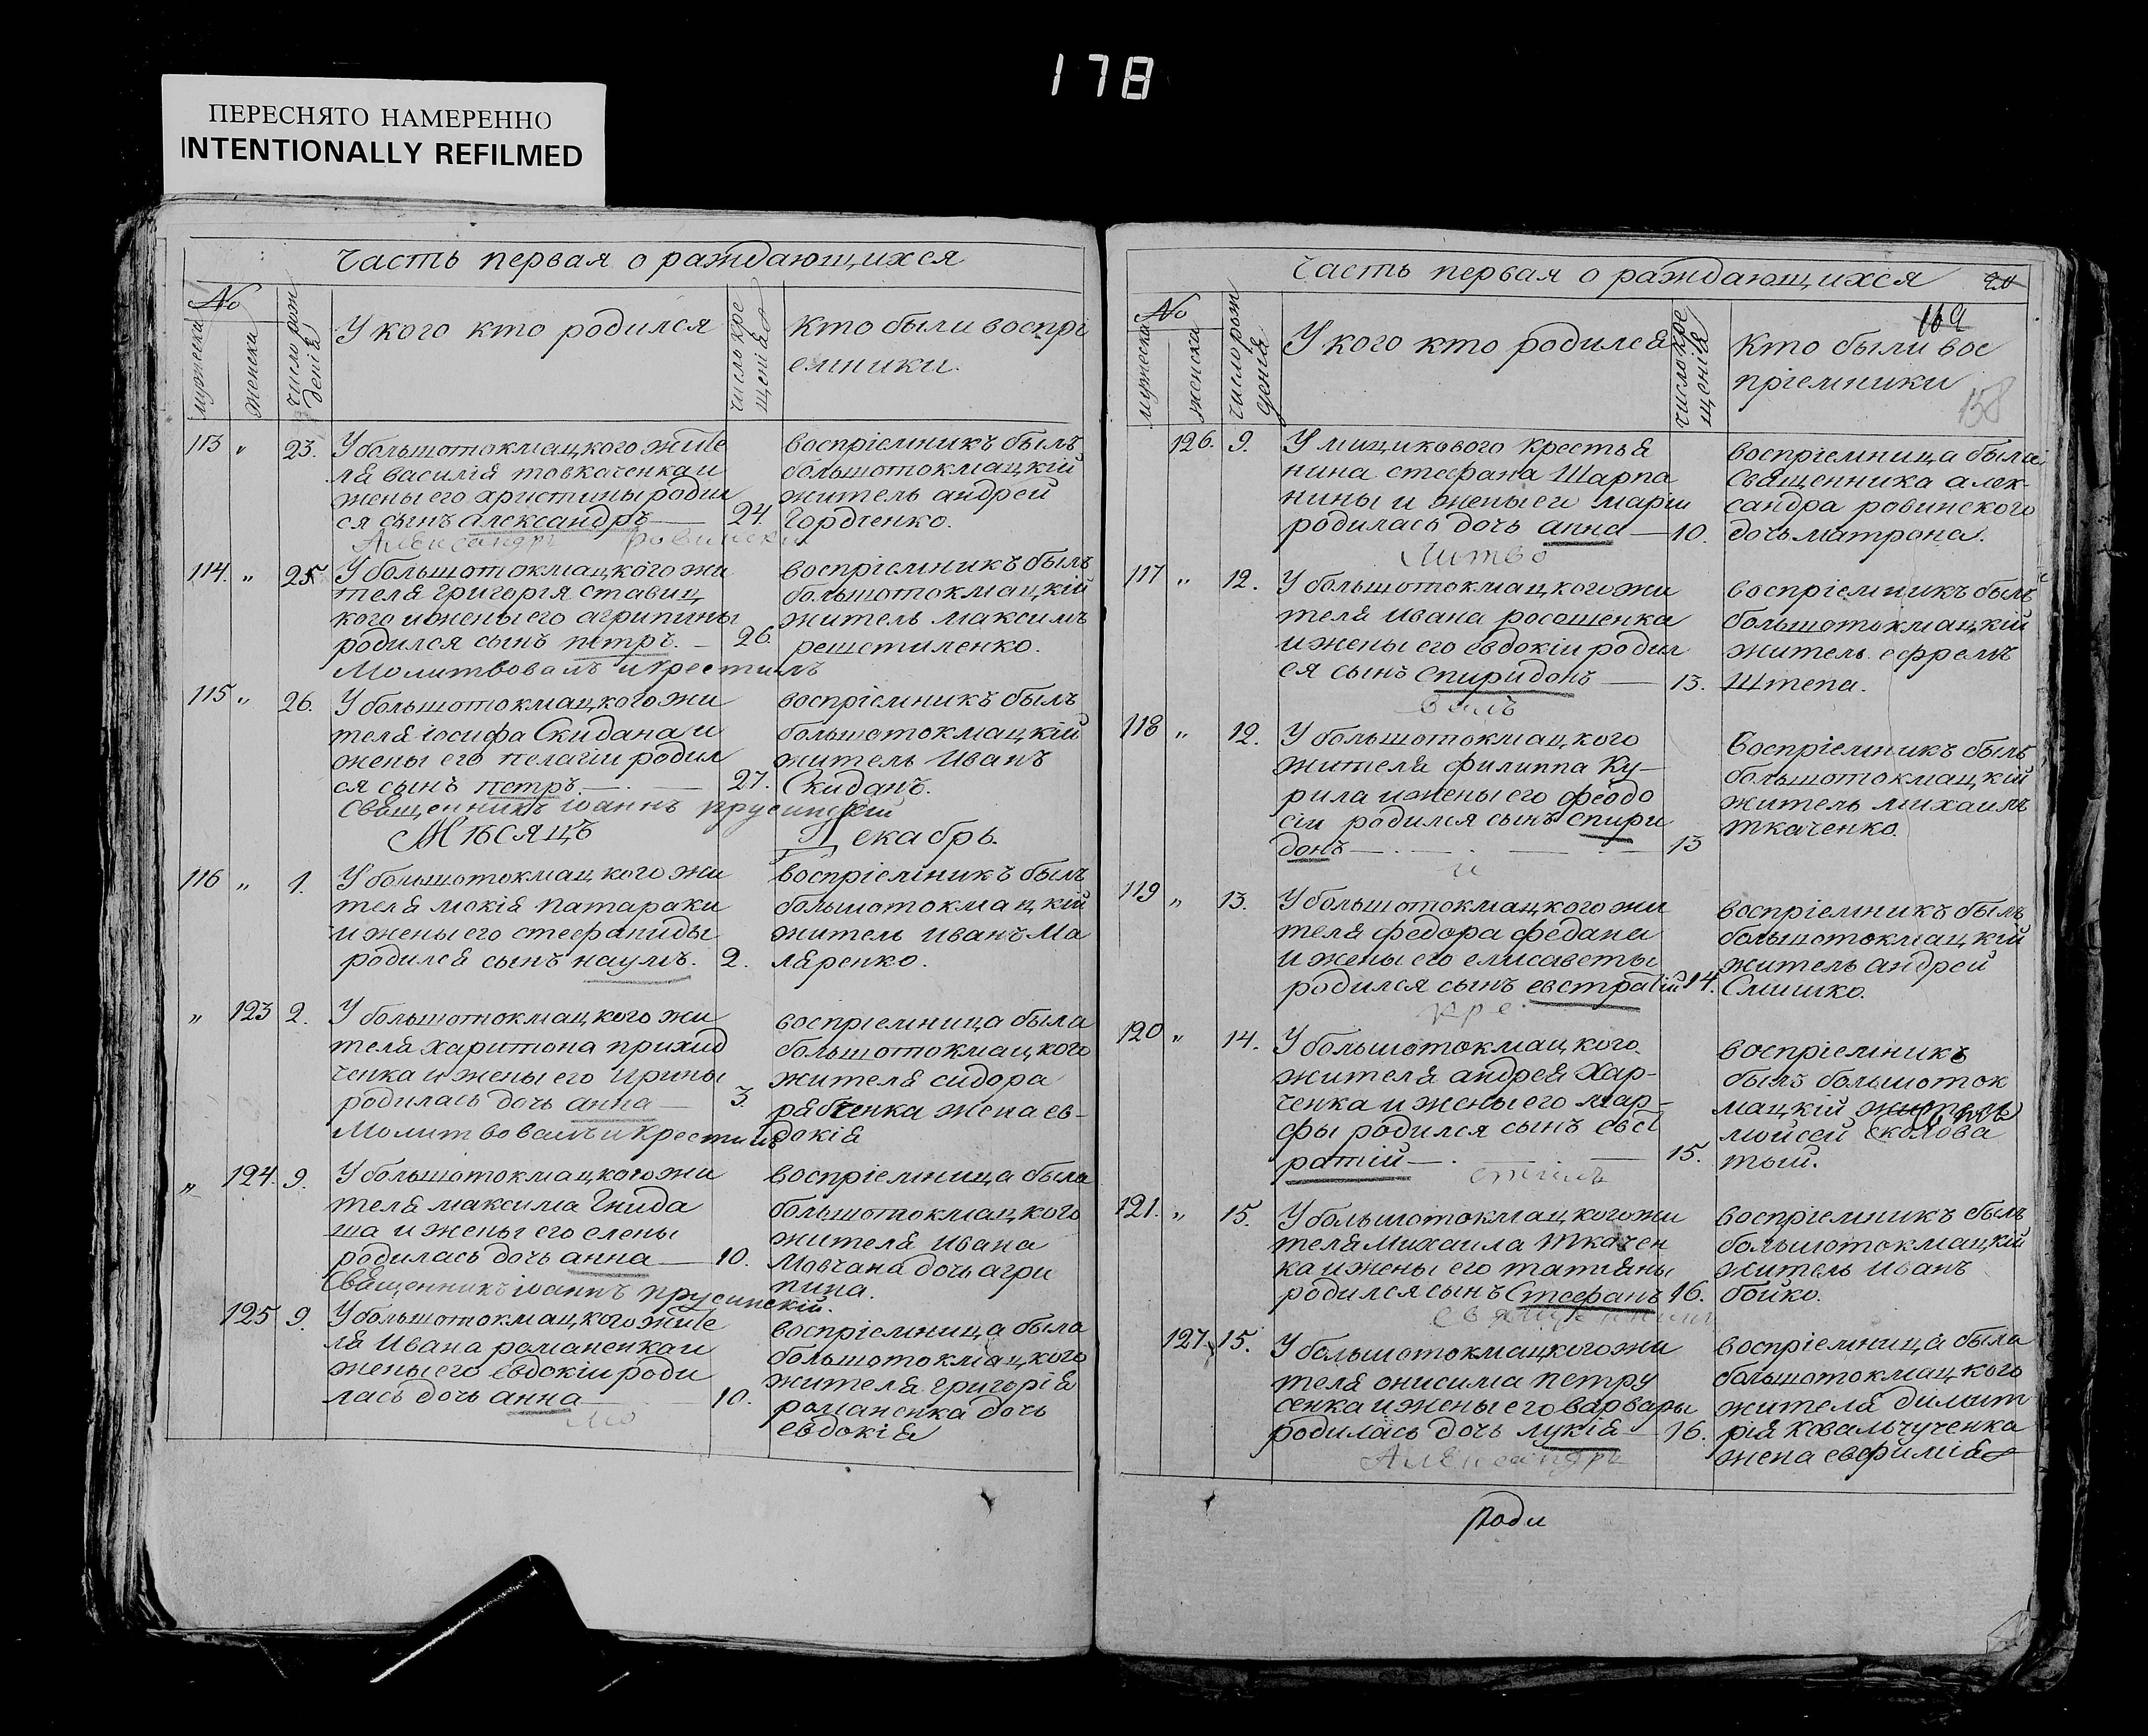 178
ПЕРЕСНЯТО НАМЕРЕННО
INTENTIONALLY REFILMED
Часть первая о раждающихся
No
мужеска
женска
число рож
денія
У кого кто родился
число кре
щенія
Кто были воспрі
емники.
113 „ 23.
У большотокмацкого жите
ля василія товкаченка и
жены его христины родил
ся сынъ александръ — 24.
воспріемникъ былъ
большотокмацкій
житель андрей
Гордіенко.
Александръ ровински
114. „ 25
У большотокмацкого жи
теля григорія ставиц
кого и жены его агрипины
родился сынъ петръ. — 26
воспріемникъ былъ
большотокмацкій
житель максимъ
решетиленко.
Молитвовалъ и крестилъ
115 „ 26.
У большотокмацкого жи
теля іосифа Скидана и
жены его пелагіи родил
ся сынъ петръ. — 27.
воспріемникъ былъ
большотокмацкій
житель Иванъ
Скиданъ.
Священникъ іоаннъ прусинскій
Мѣсяцъ Декабрь.
116 „ 1.
У большотокмацкого жи
теля мокія патараки
и жены его стефаниды
родился сынъ наумъ. 2.
воспріемникъ былъ
большотокмацкій
житель иванъ Ма
ляренко.
„ 123 2.
У большотокмацкого жи
теля харитона прихид
ченка и жены его ирины
родилась дочь анна — 3.
воспріемница была
большотокмацкого
жителя сидора
рябченка жена ев-
докія
Молитвовалъ и крестилъ
„ 124. 9.
У большотокмацкого жи
теля максима Гнида
ша и жены его елены
родилась дочь анна — 10.
воспріемница была
большотокмацкого
жителя ивана
Мовчана дочь агри
пина.
Священникъ іоаннъ прусинскій.
125 9.
У большотокмацкого жите
ля Ивана романенка и
жены его евдокіи роди
лась дочь анна — 10.
воспріемница была
большотокмацкого
жителя григорія
романенка дочь
евдокія
мо
Часть первая о раждающихся
20
169
158
No
мужеска
женска
число рож
денія
У кого кто родился
число кре
щенія
Кто были вос
пріемники
126. 9.
У мицикового крестья
нина стефана Шарпа
нины и жены его марии
родилась дочь анна — 10.
воспріемница была
Священника алек-
сандра ровинского
дочь матрона.
литво
117 „ 12.
У большотокмацкого жи
теля ивана росошенка
и жены его евдокіи родил
ся сынъ спиридонъ — 13.
воспріемникъ былъ
большотокмацкій
житель ефремъ
Штепа.
валъ
118 „ 12.
У большотокмацкого
жителя филиппа Ку-
рила и жены его феодо
сіи родился сынъ спири
донъ — 13
Воспріемникъ былъ
большотокмацкій
житель михаилъ
ткаченко.
и
119 „ 13.
У большотокмацкого жи
теля федора федана
и жены его елисаветы
родился сынъ евстратій 14.
воспріемникъ былъ
большотокмацкій
житель андрей
Слишко.
кре
120 „ 14.
У большотокмацкого
жителя андрея Хар-
ченка и жены его мар-
фы родился сынъ евст
ратій — 15.
воспріемникъ
былъ большоток
мацкій житель
мойсей Сколова
тый.
стилъ
121. „ 15.
У большотокмацкого жи
теля Михаила Ткачен
ка и жены его татіяны
родился сынъ Стефанъ 16.
воспріемникъ былъ
большотокмацкій
житель иванъ
бойко.
священникъ
127. 15.
У большотокмацкого жи
теля онисима петру
сенка и жены его варвары
родилась дочь лукія — 16.
воспріемница была
большотокмацкого
жителя димит
рія ковальчученка
жена евфимія
Александръ
Роди